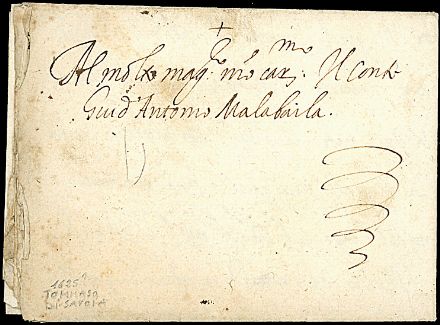 Al molto mag.co n.ro car.mo Il Conte
Guid'Antonio Malabaila.
1625
TOMMASO
DI SAVOIA